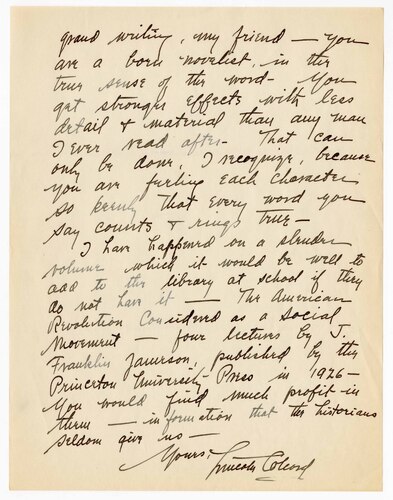 grand writing, my friend — you
are a born novelist, in the
true sense of the word — You
get stronger effects with less
detail & material than any man
I ever read after — That can
only be done, I recognize, because
you are feeling each character
so keenly that every word you
say counts & rings true —
I have happened on a slender
volume which it would be well to
add to the library at school if they
do not have it — The American
Revolution Considered as a Social
Movement — four lectures by J.
Franklin Jameson, published by the
Princeton University Press in 1926 —
You would find much profit in
them — information that the historians
seldom give us —
Yours,
Lincoln Colcord